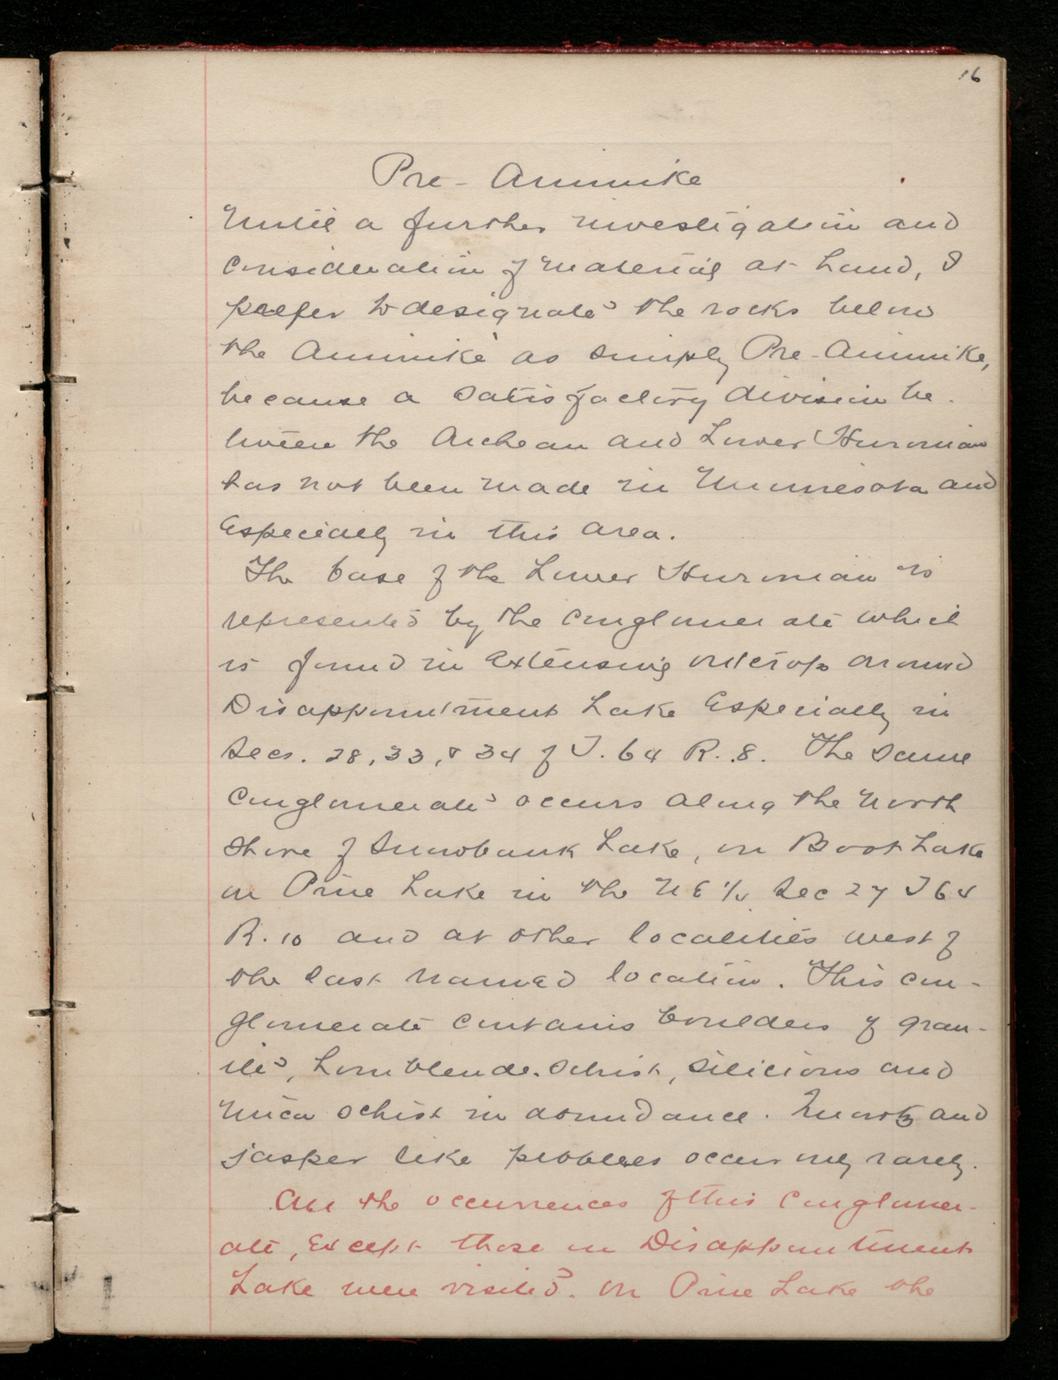 16
Pre-Animike
Until a further investigation and
consideration of material at hand, I
prefer to designate the rocks below
the Animike as simply Pre-Animike,
because a satisfactory division be-
tween the Archean and Lower Huronian
has not been made in Minnesota and
Especially in this area.
The base of the Lower Huronian is
represented by the conglomerate which
is found in extensive outcrops around
Disappointment Lake Especially in
Secs. 28, 33, & 34 of T. 64 R. 8. The same
conglomerate occurs along the north
shore of Snowbank Lake, on Boot Lake
on Pine Lake in the NE 1/4 Sec 27 T 64
R. 10 and at other localities west of
the last named location. This con-
glomerate contains boulders of gran-
ite, hornblende-schist, silicious and
mica schist in abundance. Quartz and
jasper like pebbles occur only rarely.
All the occurrences of this conglomer-
ate, Except those on Disappointment
Lake were visited. On Pine Lake the